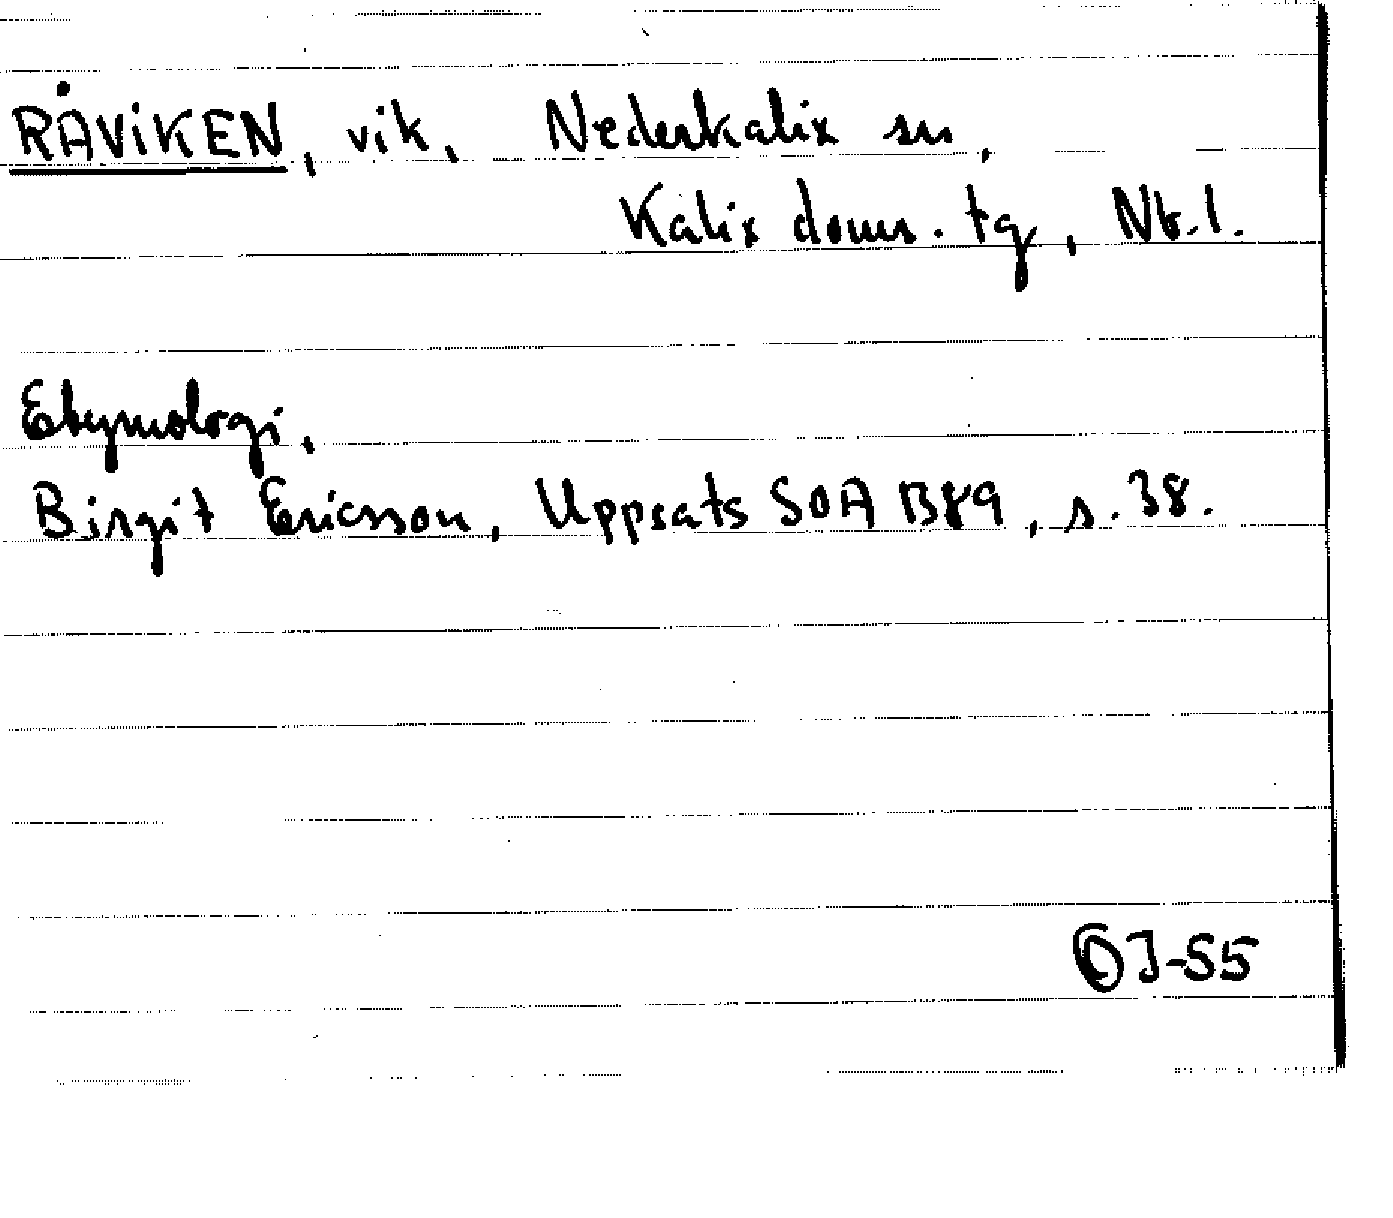 RÅVIKEN, vik, Nederkalix sn,
Kalix doms. tg, Nb.l.
Etymologi.
Birgit Ericsson, Uppsats SOA B89, s. 38.
OJ-55